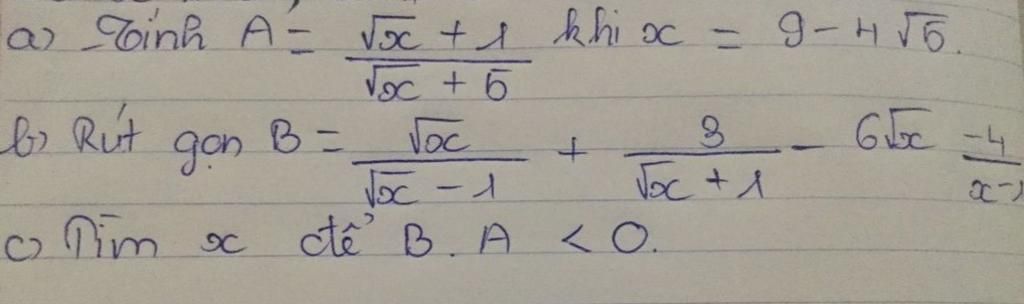 a) Tính A = (√x + 1)/(√x + 5) khi x = 9 - 4√5.
b) Rút gọn B = √x/(√x - 1) + 3/(√x + 1) - 6√x -4/(x-1
c) Tìm x để B. A < 0.